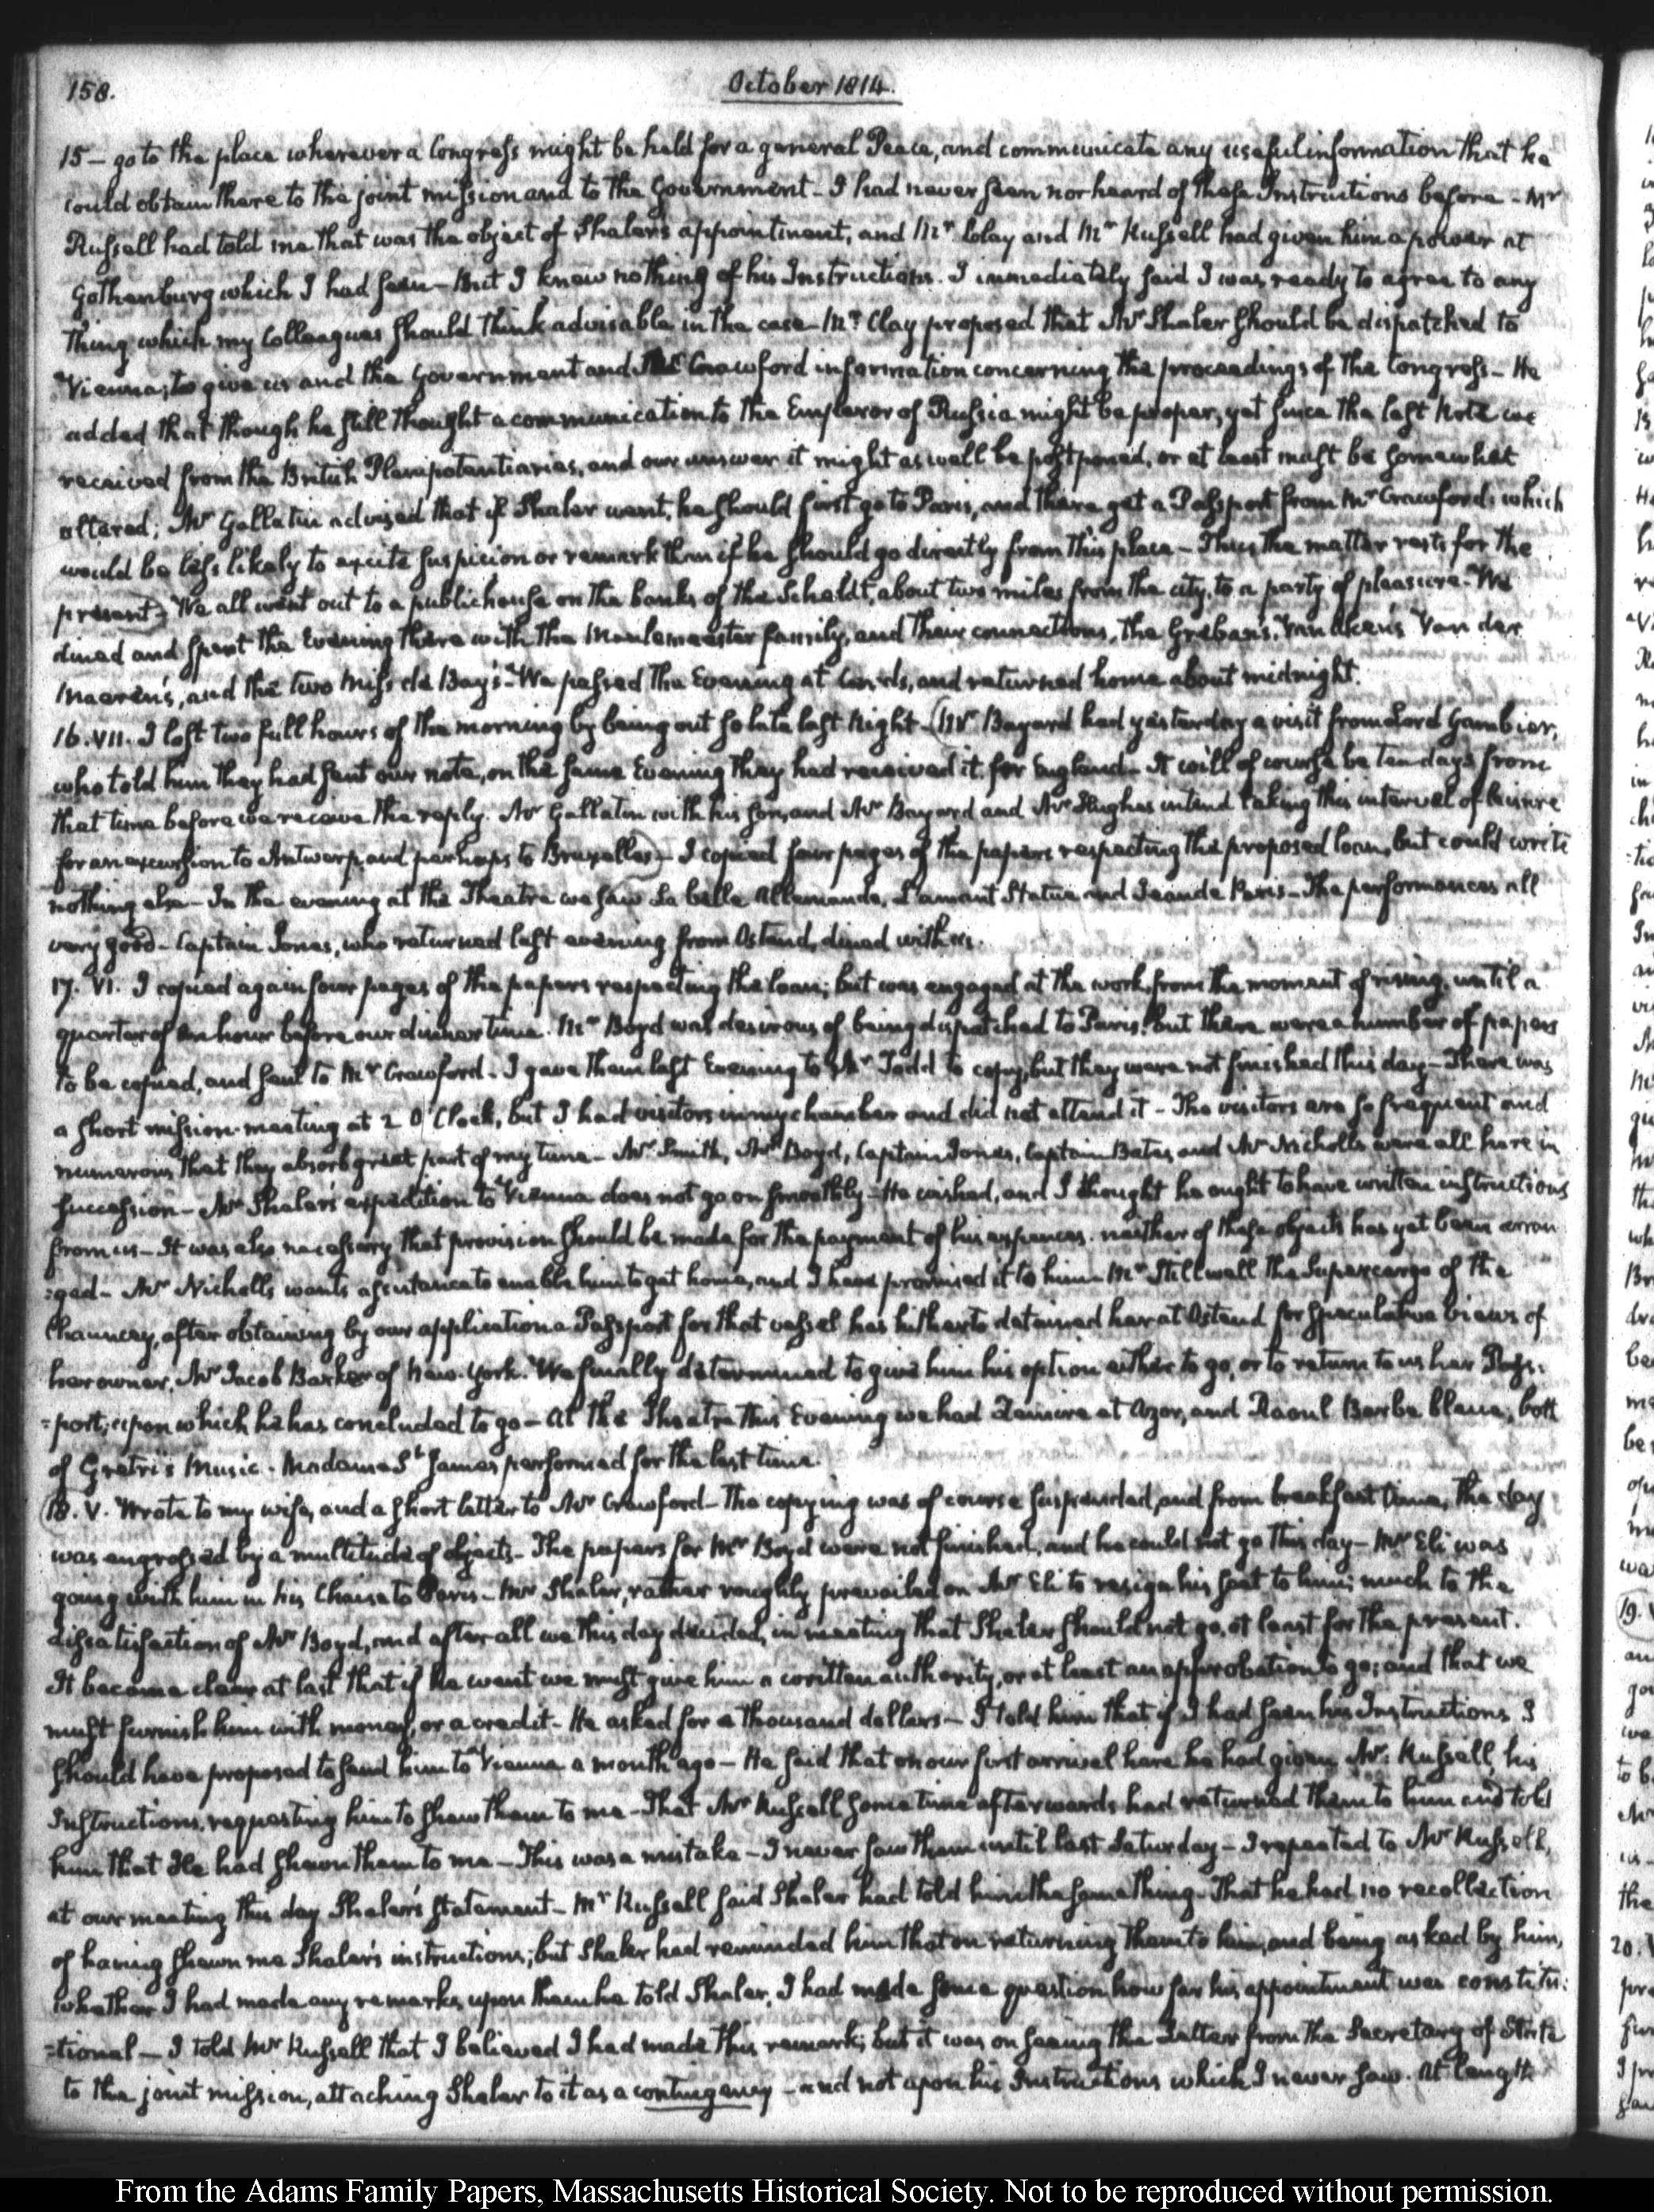 158.
October 1814.
15 – go to the place wherever a Congress might be held for a general Peace, and communicate any useful information that he
could obtain there to the joint mission and to the Government – I had never seen nor heard of these Instructions before – Mr
Russell had told me that was the object of Shaler's appointment, and Mr Clay and Mr Russell had given him a power at
Gothenburg which I had seen – But I knew nothing of his Instructions. I immediately said I was ready to agree to any
thing which my Colleagues should think advisable in the case – Mr Clay proposed that Mr Shaler should be dispatched to
Vienna; to give us and the Government and Mr Crawford information concerning the proceedings of the Congress – He
added that though he still thought a communication to the Emperor of Russia might be proper, yet since the last Note we
received from the British Plenipotentiaries, and our answer it might as well be postponed, or at least must be somewhat
altered; Mr Gallatin advised that if Shaler went, he should first go to Paris, and there get a Passport from Mr Crawford, which
would be less likely to excite suspicion or remark than if he should go directly from this place – Thus the matter rests for the
present) – We all went out to a public house on the banks of the Scheldt, about two miles from the city, to a party of pleasure – We
dined and spent the Evening there with the Meulemeester family, and their connections, the Greban's, Van Aken's Van der
Maeren's, and the two Miss de Bay's – We passed the Evening at Cards, and returned home about midnight.
16. VII. I lost two full hours of the morning by being out so late last Night – (Mr Bayard had yesterday a visit from Lord Gambier,
who told him they had sent our note, on the same Evening they had received it for England – It will of course be ten days from
that time before we receive the reply. Mr Gallatin with his son, and Mr Bayard and Mr Hughes intend taking this interval of leisure
for an excursion to Antwerp, and perhaps to Bruxelles) – I copied four pages of the papers respecting the proposed loan, but could write
nothing else – In the evening at the Theatre we saw La belle Allemande, L'amant Statue and Jean de Paris – The performances all
very good – Captain Jones, who returned last evening from Ostend, dined with us.
17. VI. I copied again four pages of the papers respecting the loan; but was engaged at the work, from the moment of rising, until a
quarter of an hour before our dinner time. Mr Boyd was desirous of being dispatched to Paris, but there were a number of papers
to be copied, and sent to Mr Crawford – I gave them last Evening to Mr Todd to copy, but they were not finished this day – There was
a short mission-meeting at 2 O'Clock, but I had visitors in my chamber and did not attend it – The visitors are so frequent and
numerous that they absorb great part of my time – Mr Smith, Mr Boyd, Captain Jones, Captain Bates, and Mr Nicholls were all here in
succession – Mr Shaler's expedition to Vienna does not go on smoothly – He wished, and I thought he ought to have written instructions
from us – It was also necessary that provision should be made for the payment of his expences. neither of these objects has yet been arran
:ged – Mr Nicholls wants assistance to enable him to get home, and I have promised it to him – Mr Stillwell the Supercargo of the
Chauncey, after obtaining by our application a Passport for that vessel has hitherto detained her at Ostend for speculative views of
her owner, Mr Jacob Barker of New-York. We finally determined to give him his option either to go, or to return to us her Pass:
=port; upon which he has concluded to go – At the Theatre this Evening we had Zemire et Azor, and Raoul Barbe bleue, both
of Gretri's Music – Madame St James performed for the last time.
18. V. Wrote to my wife, and a short letter to Mr Crawford – The copying was of course suspended, and from breakfast time, the day
was engrossed by a multitude of objects – The papers for Mr Boyd were not finished, and he could not go this day – Mr Eli was
going with him in his Chaise to Paris – Mr Shaler, rather roughly prevailed on Mr Eli to resign his seat to him; much to the
dissatisfaction of Mr Boyd, and after all we this day decided, in meeting that Shaler should not go, at least for the present.
It became clear at last that if he went we must give him a written authority, or at least an approbation to go; and that we
must furnish him with money, or a credit – He asked for a thousand dollars – I told him that if I had seen his Instructions I
should have proposed to send him to Vienna a month ago – He said that on our first arrival here he had given Mr Russell, his
Instructions, requesting him to shew them to me – That Mr Russell some time afterwards had returned them to him and told
him that He had shewn them to me – This was a mistake – I never saw them until last Saturday – I repeated to Mr Russell,
at our meeting this day Shaler's statement – Mr Russell said Shaler had told him the same thing – That he had no recollection
of having shewn me Shaler's instructions; but Shaler had reminded him that on returning them to him, and being asked by him,
whether I had made any remarks upon them he told Shaler, I had made some question how far his appointment was constitu:
=tional – I told Mr Russell that I believed I had made this remark; but it was on seeing the Letter from the Secretary of State
to the joint mission, attaching Shaler to it as a contingency – and not upon his Instructions which I never saw. At length
From the Adams Family Papers, Massachusetts Historical Society. Not to be reproduced without permission.